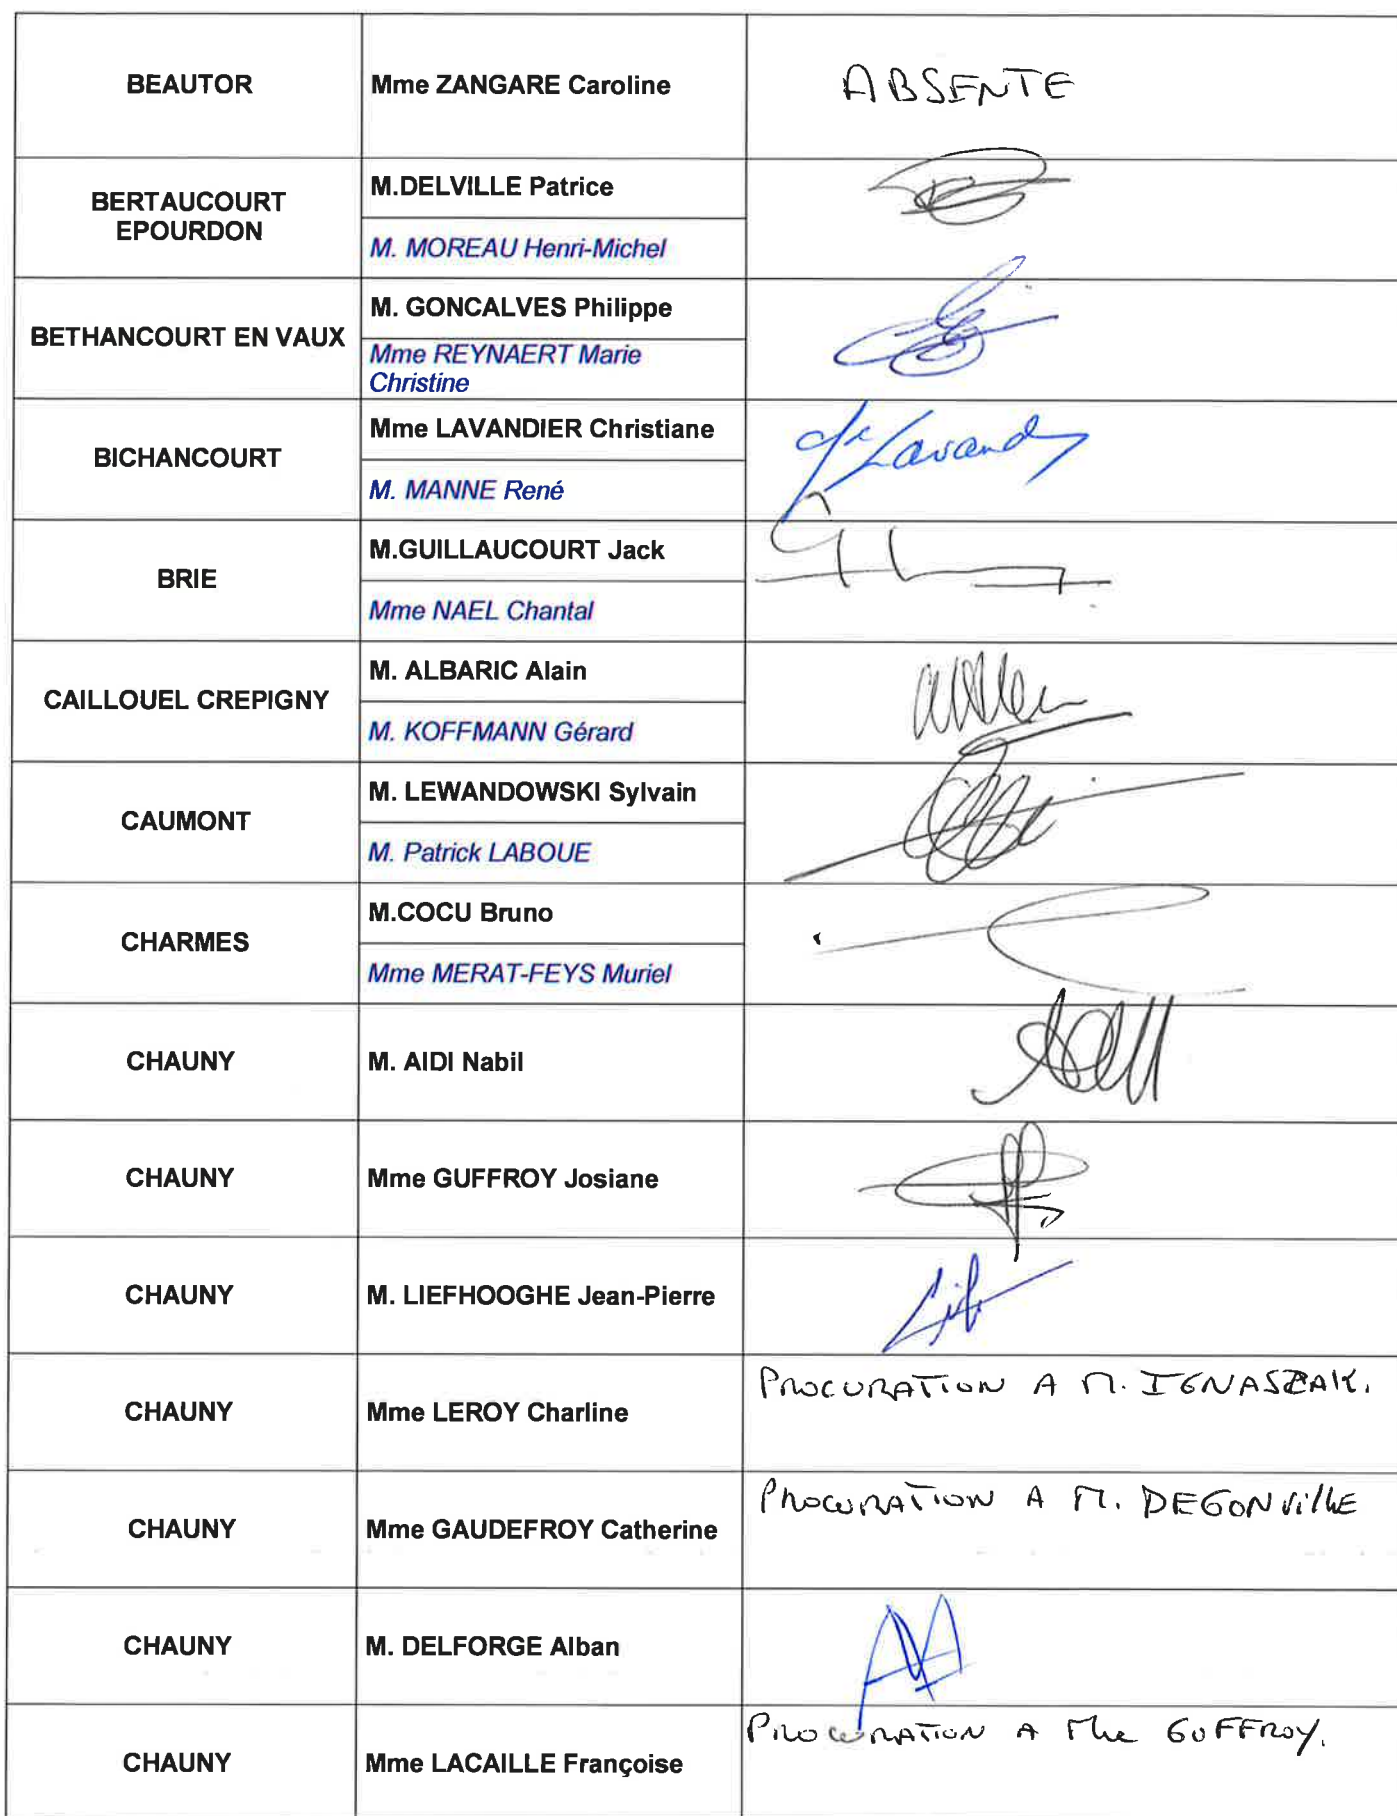 BEAUTOR
Mme ZANGARE Caroline
ABSENTE
BERTAUCOURT
EPOURDON
M.DELVILLE Patrice
M. MOREAU Henri-Michel
BETHANCOURT EN VAUX
M. GONCALVES Philippe
Mme REYNAERT Marie
Christine
BICHANCOURT
Mme LAVANDIER Christiane
M. MANNE René
BRIE
M.GUILLAUCOURT Jack
Mme NAEL Chantal
CAILLOUEL CREPIGNY
M. ALBARIC Alain
M. KOFFMANN Gérard
CAUMONT
M. LEWANDOWSKI Sylvain
M. Patrick LABOUE
CHARMES
M.COCU Bruno
Mme MERAT-FEYS Muriel
CHAUNY
M. AIDI Nabil
CHAUNY
Mme GUFFROY Josiane
CHAUNY
M. LIEFHOOGHE Jean-Pierre
CHAUNY
Mme LEROY Charline
PROCURATION A M. IGNASZAK.
CHAUNY
Mme GAUDEFROY Catherine
PROCURATION A M. DEGONVILLE
CHAUNY
M. DELFORGE Alban
CHAUNY
Mme LACAILLE Françoise
PROCURATION A Mme GUFFROY.